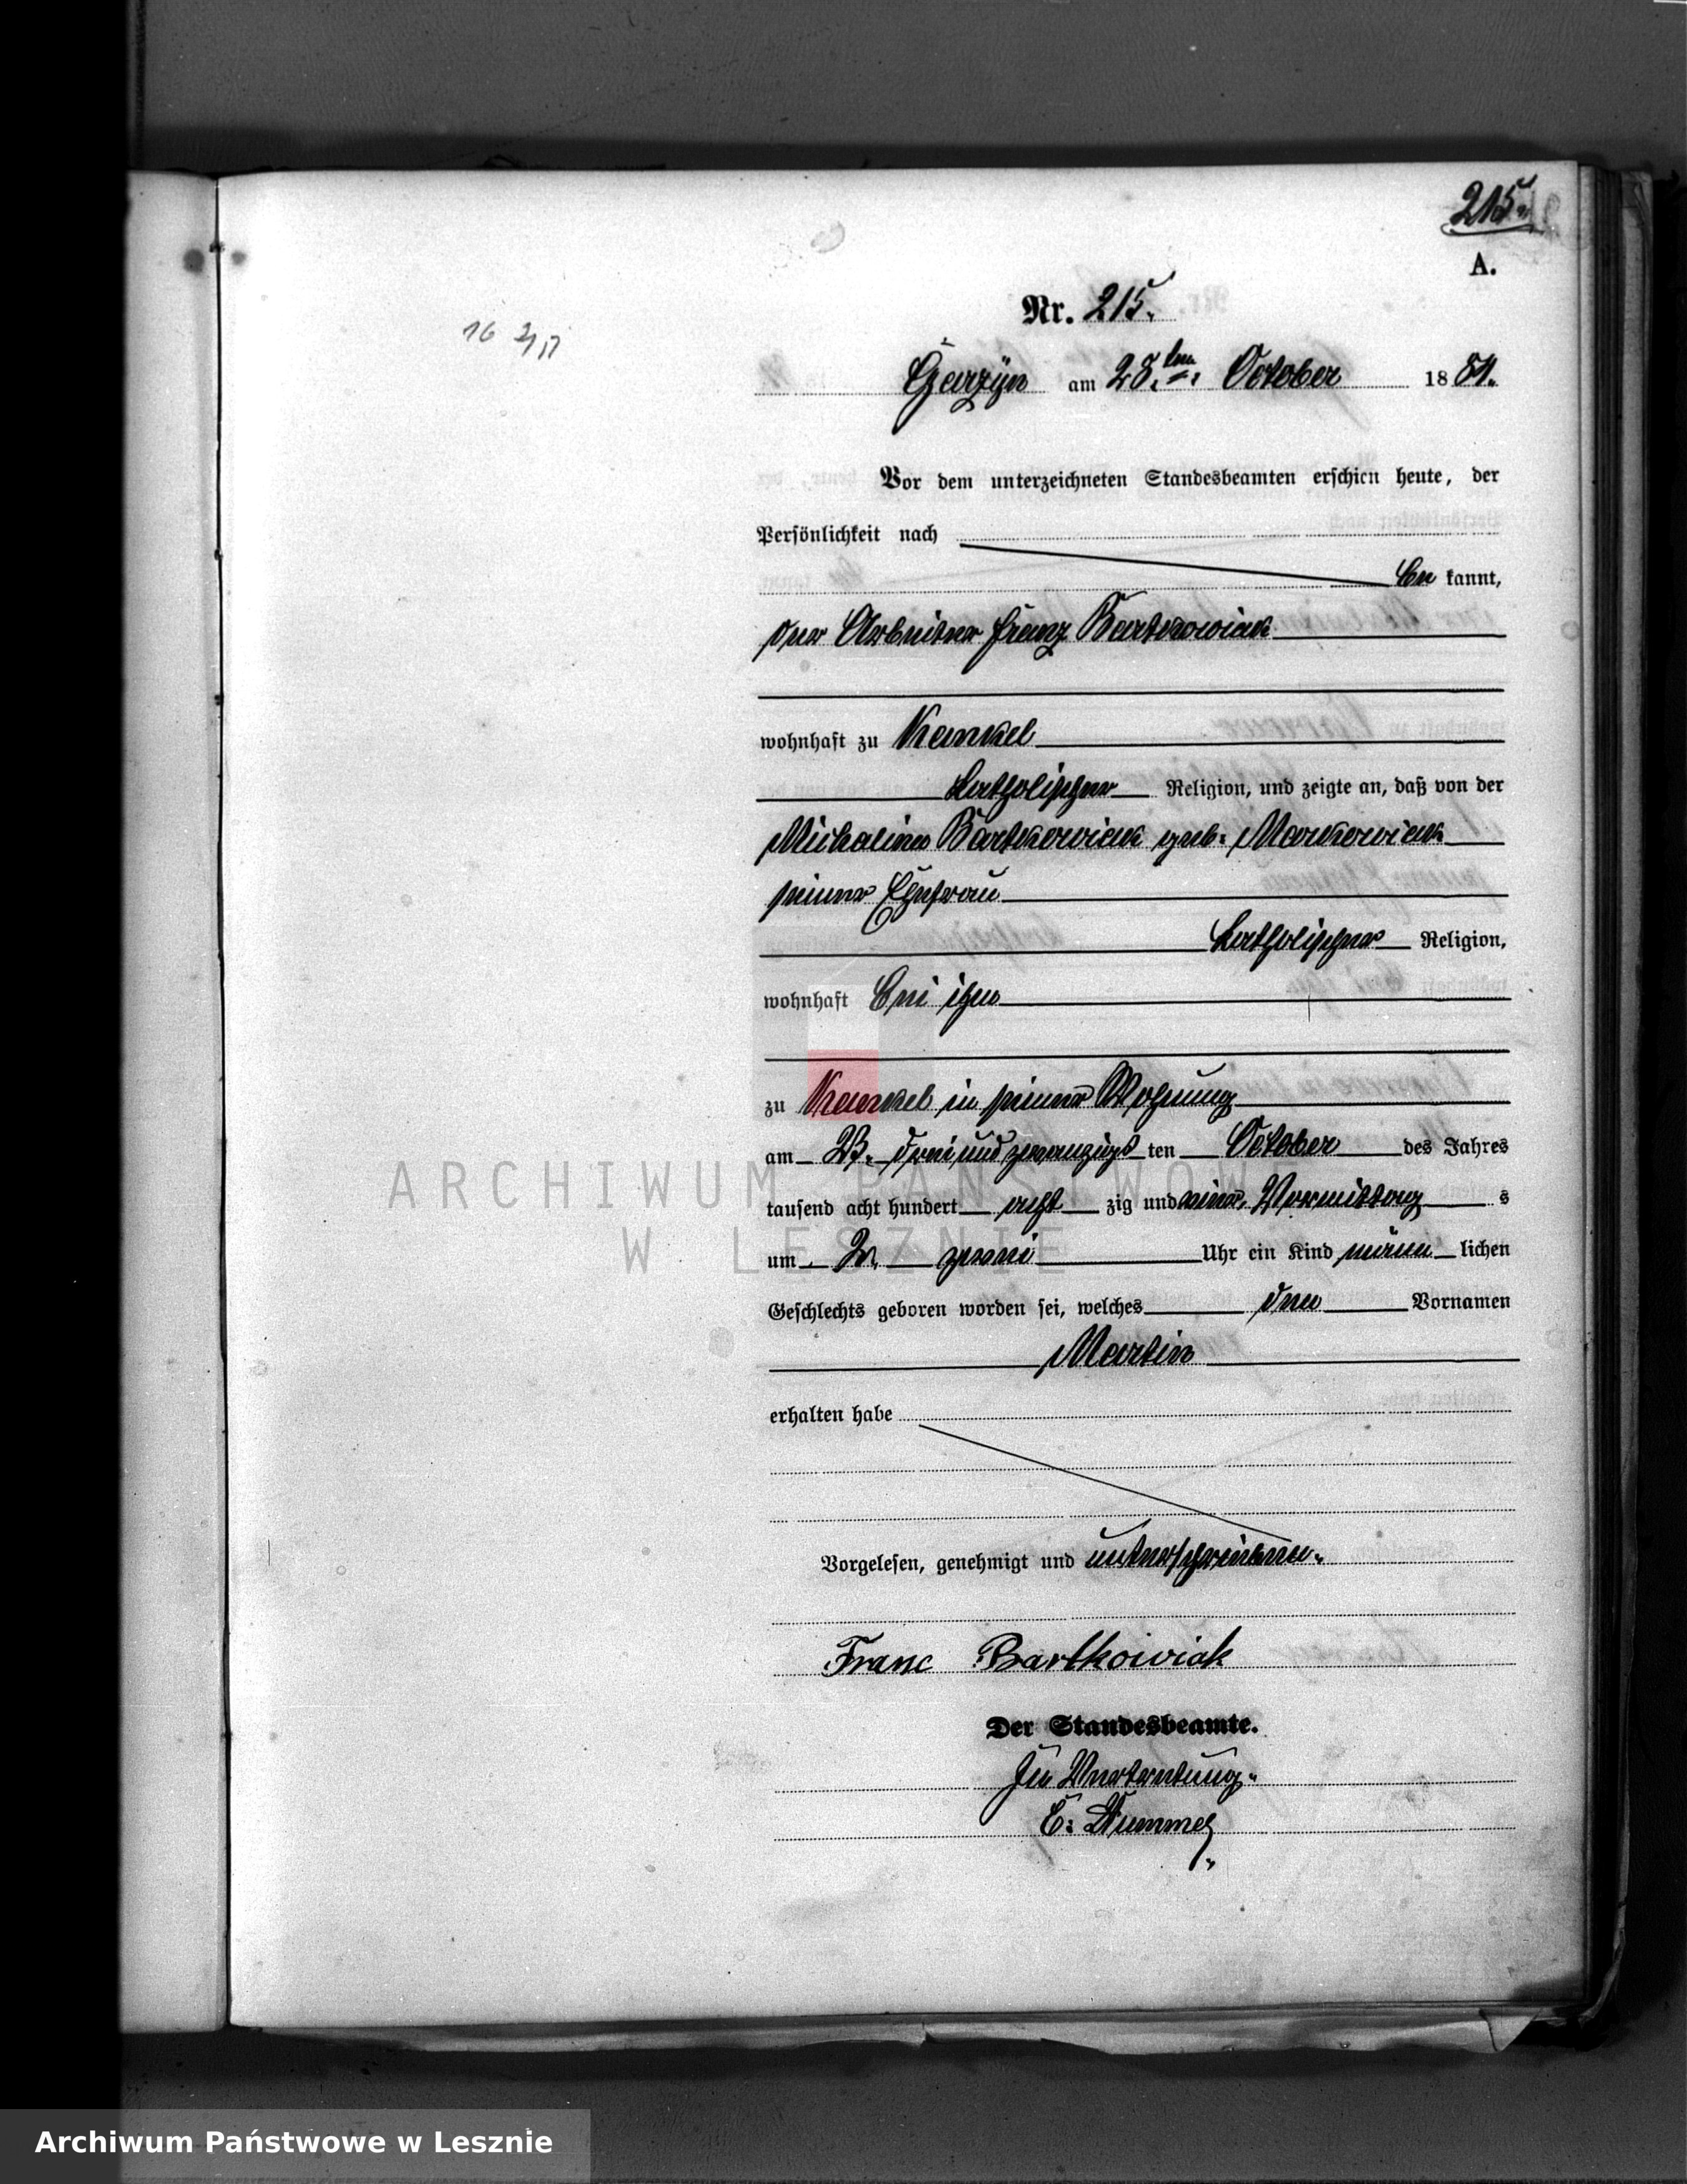 215.
A.
Nr. 215.
Garzyn am 28.ten October 1881.
Vor dem unterzeichneten Standesbeamten erschien heute, der
Persönlichkeit nach
be kannt,
der Arbeiter Franz Bartkowiak
wohnhaft zu Kankel
katholischer Religion, und zeigte an, daß von der
Michalina Bartkowiak geb. Markowiak
seiner Ehefrau
katholischer Religion,
wohnhaft bei ihm
zu Kankel in seiner Wohnung
am 23. drei und zwanzigst ten October des Jahres
tausend acht hundert acht zig und eins, Vormittag s
um 2. zwei Uhr ein Kind männ lichen
Geschlechts geboren worden sei, welches den Vornamen
Martin
erhalten habe
Vorgelesen, genehmigt und unterschrieben.
Franc Bartkowiak
Der Standesbeamte.
In Vertretung.
ARCHIWUM PAŃSTWOWE
W LESZNIE
Archiwum Państwowe w Lesznie